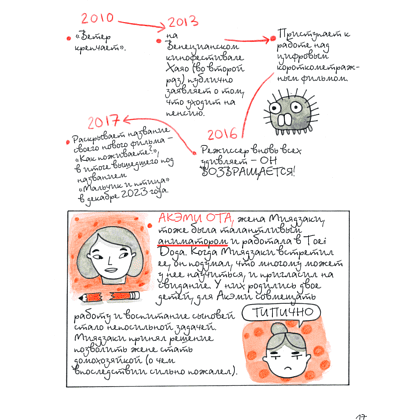 2010
«Ветер
крепчает».
2013
на
Венецианском
кинофестивале
Хаяо (во второй
раз) публично
заявляет о том,
что уходит на
пенсию.
Приступает к
работе над
цифровым
короткометраж-
ным фильмом.
2016
Режиссер вновь всех
удивляет – ОН
ВОЗВРАЩАЕТСЯ!
2017
Раскрывает название
своего нового фильма –
«Как поживаете?»,
в итоге вышедшего под
названием
«Мальчик и птица»
в декабре 2023 года.
АКЭМИ ОТА, жена Миядзаки,
тоже была талантливым
аниматором и работала в Toei
Doga. Когда Миядзаки встретил
ее, он подумал, что многому может
у нее научиться, и пригласил на
свидание. У них родились двое
детей, для Акэми совмещать
работу и воспитание сыновей
стало непосильной задачей.
Миядзаки принял решение
позволить жене стать
домохозяйкой (о чем
впоследствии сильно пожалел).
ТИПИЧНО